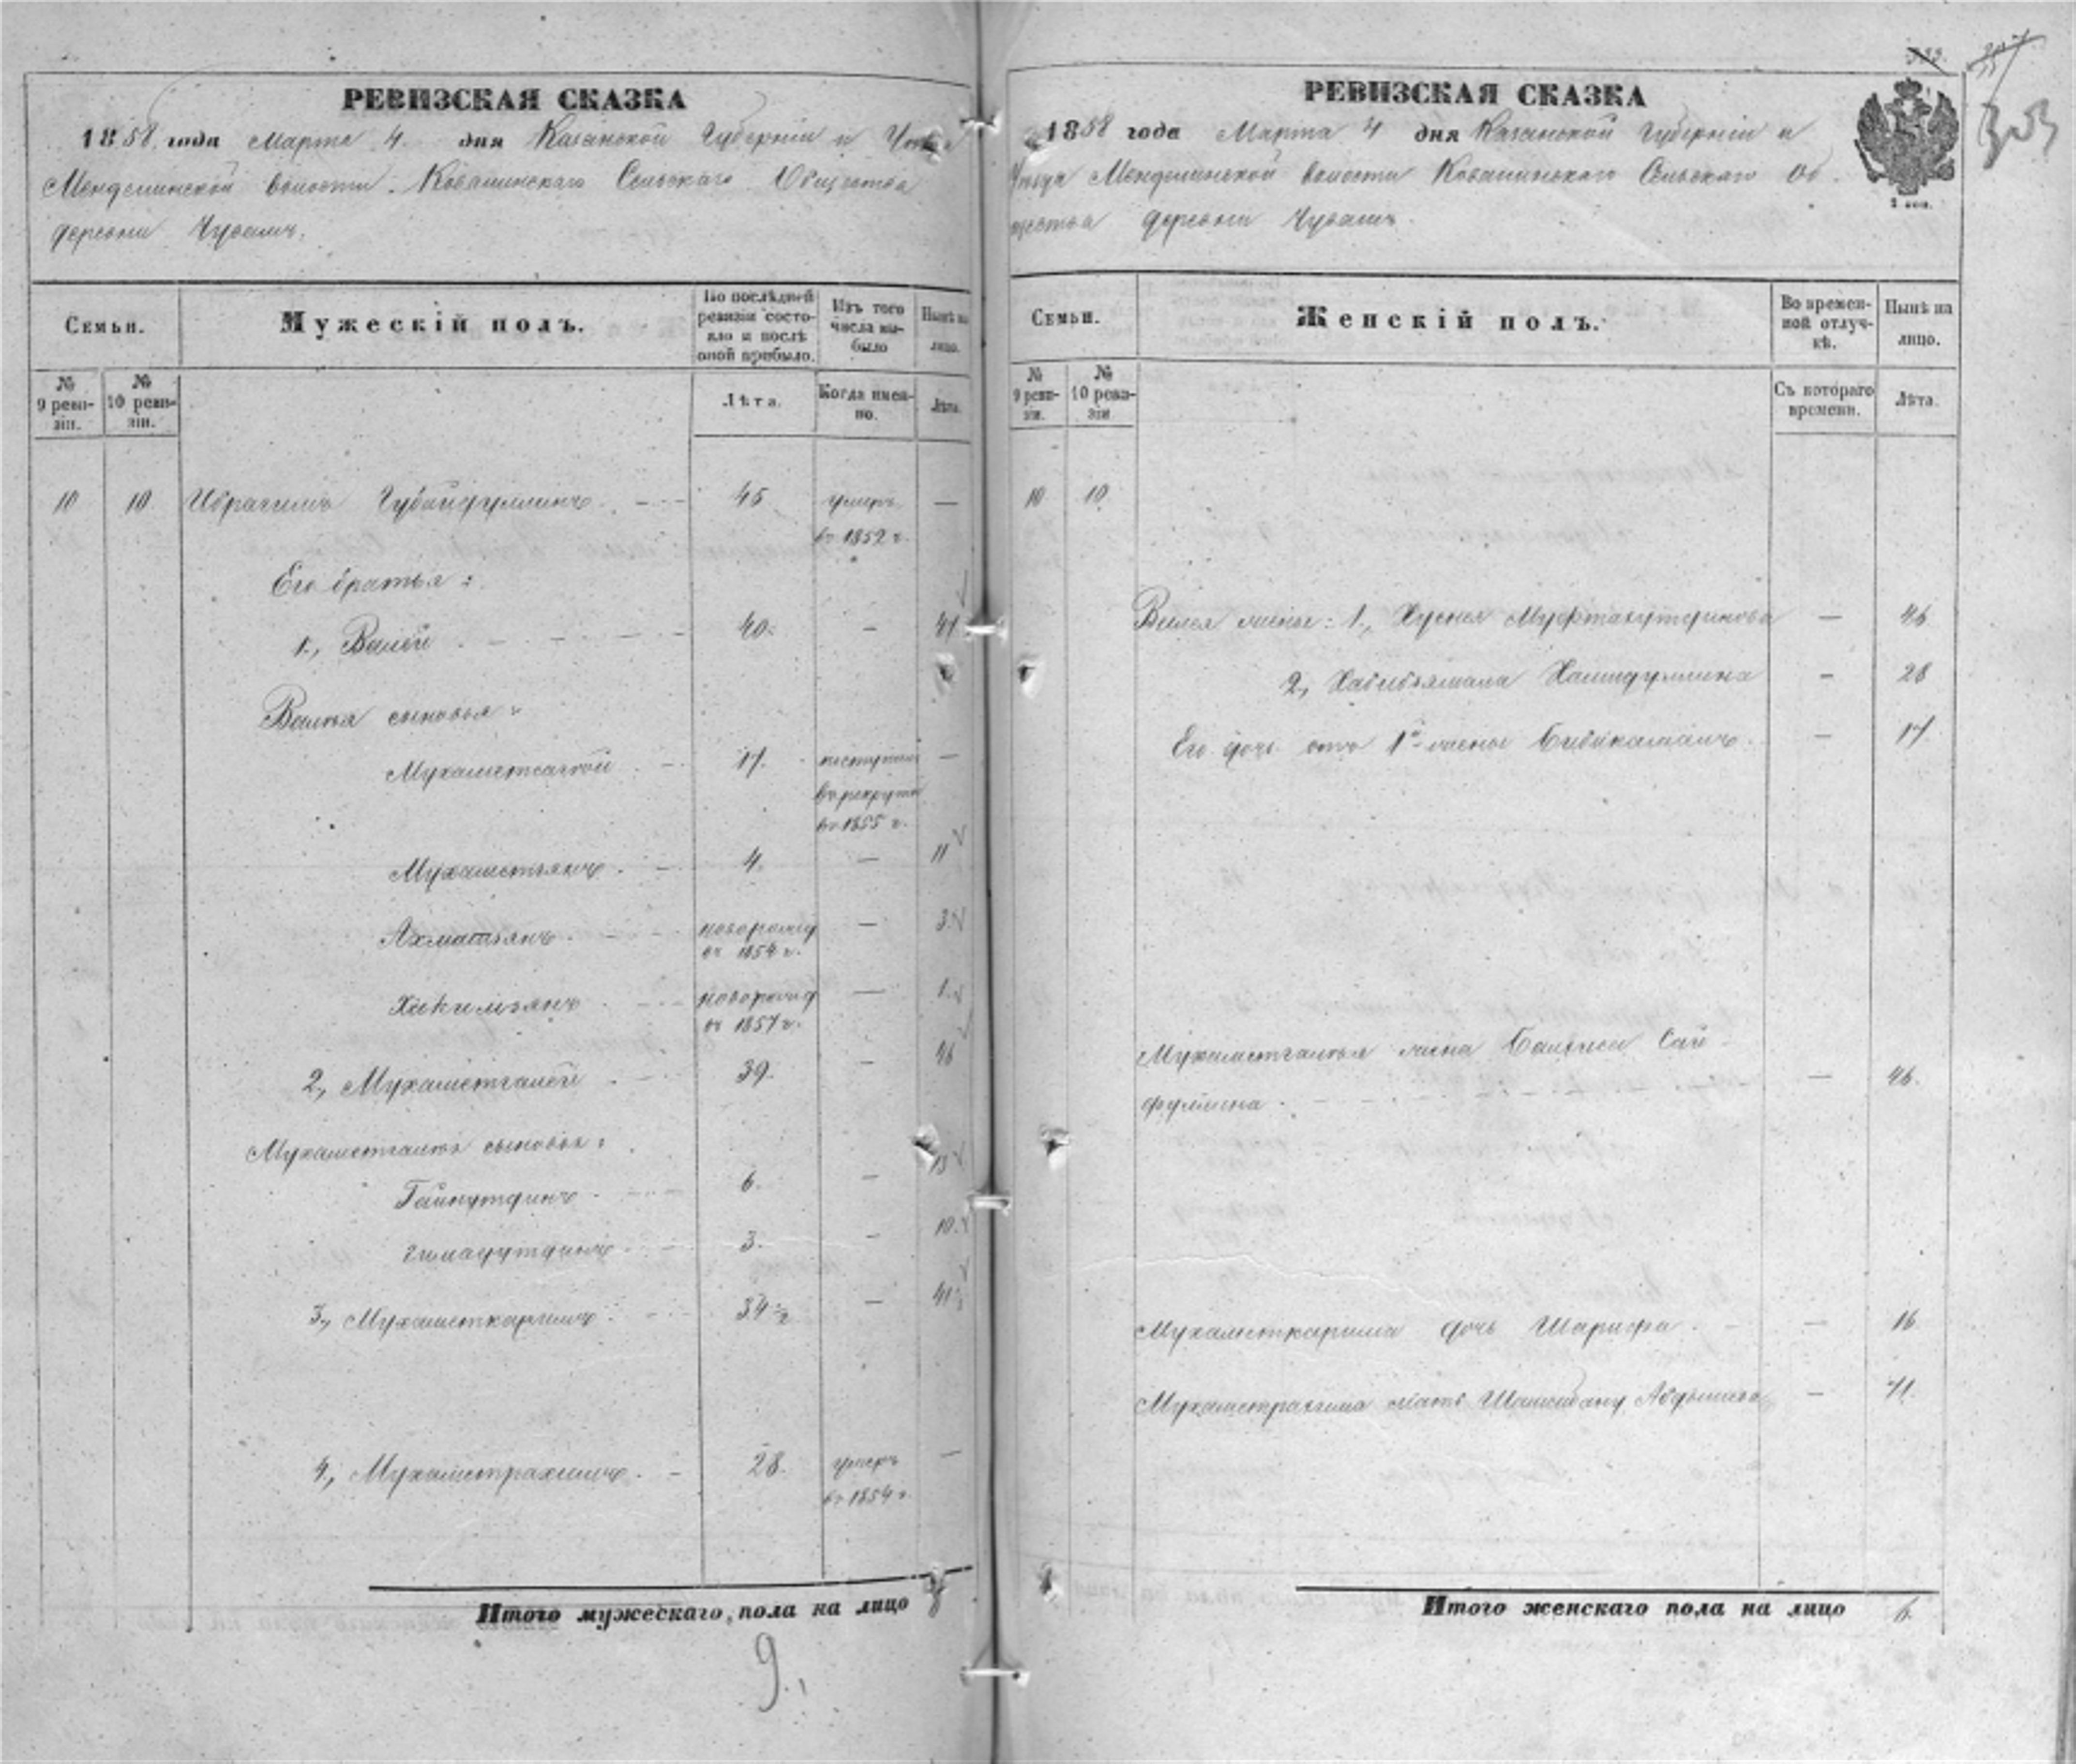 РЕВИЗСКАЯ СКАЗКА
1858 года Марта 4 дня Казанской Губерніи и Уезда
Менделинской волости Ковалинскаго Сельскаго Общества
деревни Чувашъ.
Семьи.
Мужескій полъ.
По послѣдней ревизіи состояло и послѣ оной прибыло.
Изъ того числа выбыло
Нынѣ на лицо.
№ 9 ревизіи.
№ 10 ревизіи.
Лѣта.
Когда именно.
Лѣта.
10 10 Ибрагимъ Губайдуллинъ 45 умеръ —
въ 1852 г.
Его братья:
1., Валей 40. — 47
Валея сыновья:
Мухаметсадкой 17. поступилъ —
въ рекруты
въ 1855 г.
Мухаметьянъ 4. — 11
Ахматьянъ новорожд — 3
въ 1854 г.
Хакимзянъ новорожд — 1
въ 1857 г.
2., Мухаметгалей 39. — 46
Мухаметгалея сыновья:
Гайнутдинъ 6. — 13
3. — 10.
3., Мухаметкаримъ 34 1/2 — 41 1/2
4., Мухаметрахимъ 28. умеръ —
въ 1854 г.
Итого мужескаго пола на лицо
9.
РЕВИЗСКАЯ СКАЗКА
1858 года Марта 4 дня Казанской Губерніи и
Уезда Менделинской волости Ковалинскаго Сельскаго Об-
щества деревни Чувашъ.
2 коп.
353
Семьи.
Женскій полъ.
Во временной отлучкѣ.
Нынѣ на лицо.
№ 9 ревизіи.
№ 10 ревизіи.
Съ котораго времени.
Лѣта.
10 10
Валея жены: 1., Хусня Муфтахутдинова — 46
2., Хабибьямала Хамидуллина — 28
Его дочь отъ 1й жены Бибикамалъ — 17
Мухаметгалея жена Сай-
фуллина — 46.
Мухаметкарима дочь Шарифа — 16
Мухаметрахима мать — 71.
Итого женскаго пола на лицо 6.